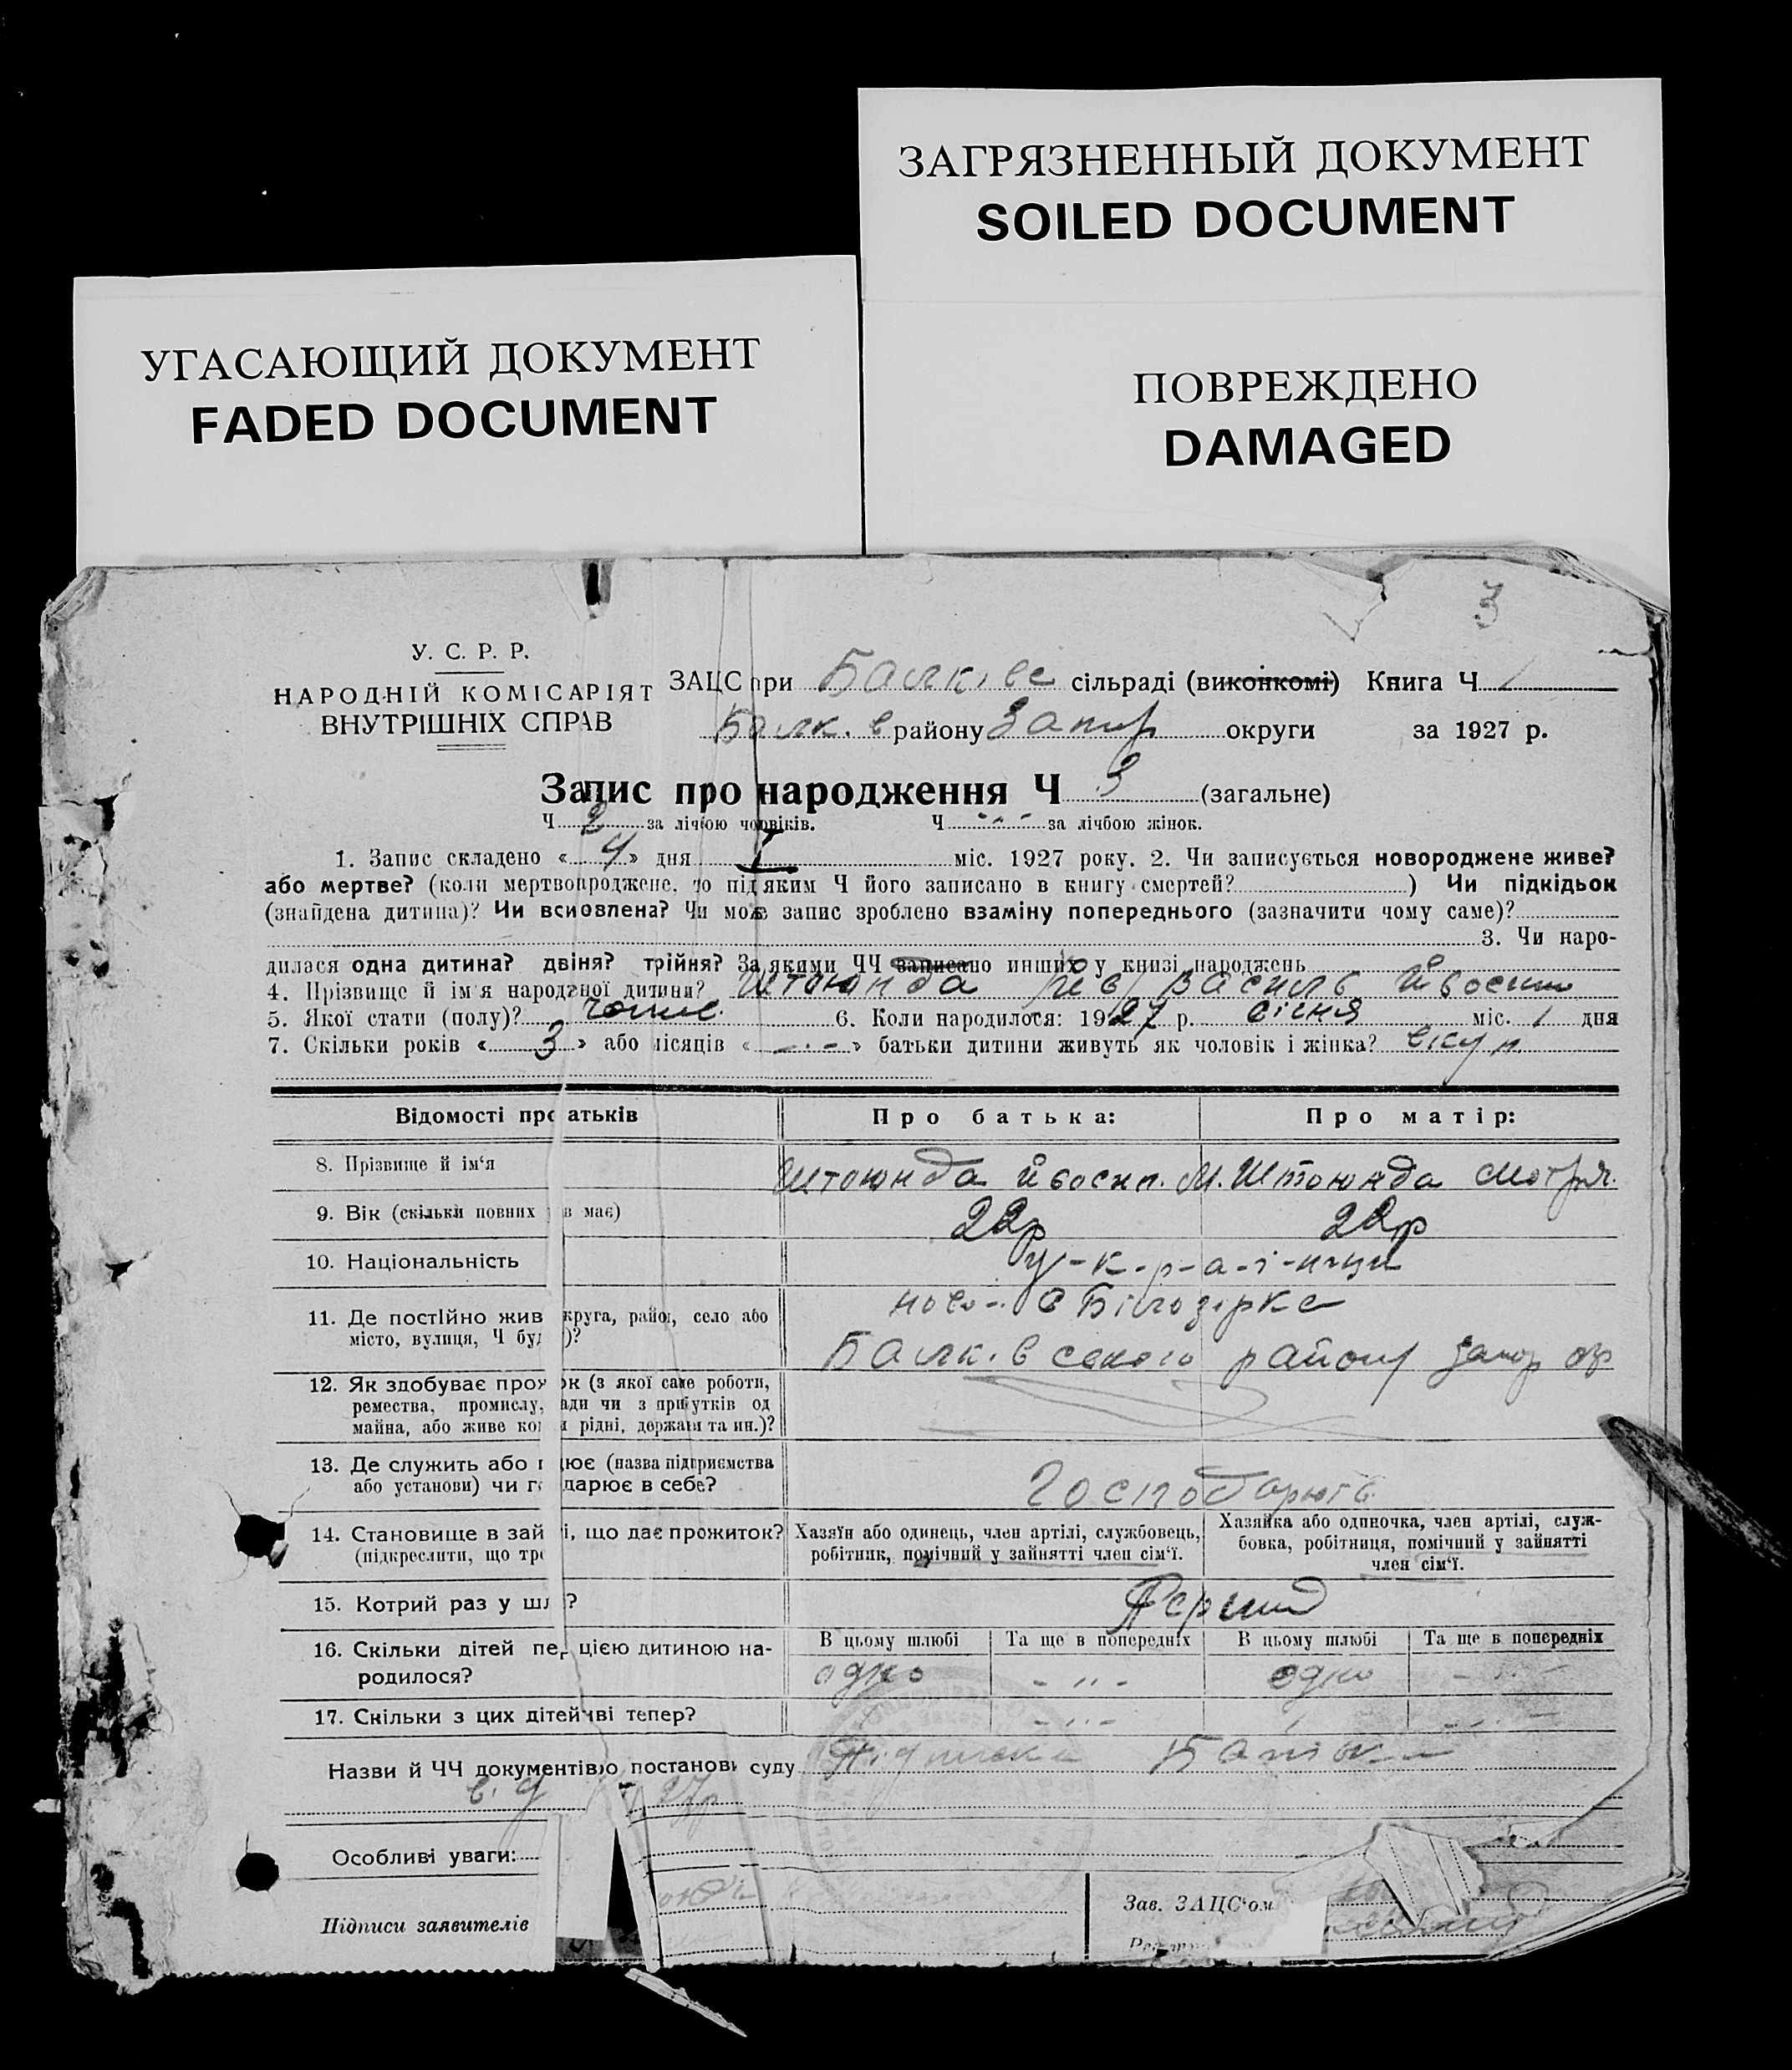 ЗАГРЯЗНЕННЫЙ ДОКУМЕНТ
SOILED DOCUMENT
УГАСАЮЩИЙ ДОКУМЕНТ
FADED DOCUMENT
ПОВРЕЖДЕНО
DAMAGED
3
У. С. Р. Р.
НАРОДНІЙ КОМІСАРІЯТ
ВНУТРІШНІХ СПРАВ
ЗАЦС при Балківс сільраді (виконкомі) Книга Ч 1
Балк. в району Запор округи за 1927 р.
Запис про народження Ч 3 (загальне)
Ч 2 за лічбою чоловіків. Ч -"- за лічбою жінок.
1. Запис складено « 4 » дня I міс. 1927 року. 2. Чи записується новороджене живе?
або мертве? (коли мертвонароджене, то під яким Ч його записано в книгу смертей? ) Чи підкідьок
(знайдена дитина)? Чи всиовлена? Чи може запис зроблено взаміну попереднього (зазначити чому саме)?
3. Чи наро-
дилася одна дитина? двіня? трійня? За якими ЧЧ записано инших у книзі народжень
4. Прізвище й ім'я народженої дитини? Штоюнда Василь Йвосип
5. Якої стати (полу)? чолов. 6. Коли народилося: 1927 р. січня міс. 1 дня
7. Скільки років « 3 » або місяців « -"- » батьки дитини живуть як чоловік і жінка? вкуп
Відомості про батьків Про батька: Про матір:
8. Прізвище й ім'я Штоюнда Йвосип. М. Штоюнда Мотря.
9. Вік (скільки повних років має) 22р 22р
10. Національність у-к-р-а-ї-нци
11. Де постійно живе (округа, район, село або с Білозірка
місто, вулиця, Ч буд.)? Балківського району Запор окр
12. Як здобуває прожиток (з якої саме роботи,
ремества, промислу, ади чи з прибутків од
майна, або живе коштом рідні, держави та ин.)?
13. Де служить або працює (назва підприємства
або установи) чи господарює в себе? Господарюють
14. Становище в занятті, що дає прожиток? Хазяїн або одинець, член артілі, службовець, Хазяйка або одиночка, член артілі, служ-
(підкреслити, що треба) робітник, помічний у зайнятті член сім'ї. бовка, робітниця, помічний у зайнятті
член сім'ї.
15. Котрий раз у шлюбі? Перший
16. Скільки дітей перед цією дитиною на- В цьому шлюбі Та ще в попередніх В цьому шлюбі Та ще в попередніх
родилося? одно -"- одно -"-
17. Скільки з цих дітей живі тепер? 1 -"- 1 -"-
Назви й ЧЧ документів, постанови суду Підписка Батька
від 27р
Особливі уваги:
Підписи заявителів Зав. ЗАЦС'ом